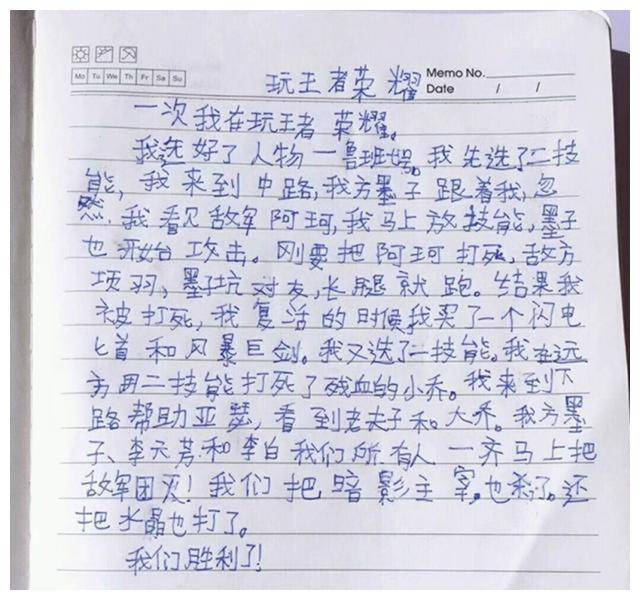 Mo Tu We Th Fr Sa Su
Memo No.
Date / /
玩王者荣耀
一次我在玩王者荣耀。
我选好了人物一鲁班娱。我先选了二技
能,我来到中路,我方墨子跟着我,忽
然,我看见敌军阿珂,我马上放技能,墨子
也开始攻击。刚要把阿珂打死,敌方
项羽,墨子坑对友,长腿就跑。结果我
被打死,我复活的时候我买了一个闪电
匕首和风暴巨剑。我又选了二技能。我在远
方用二技能打死了残血的小乔。我来到下
路帮助亚瑟,看到老夫子和大乔。我方墨
子、李元芳和李白我们所有人一齐马上把
敌军团灭!我们把暗影主宰。也杀了。还
把水晶也打了。
我们胜利了!